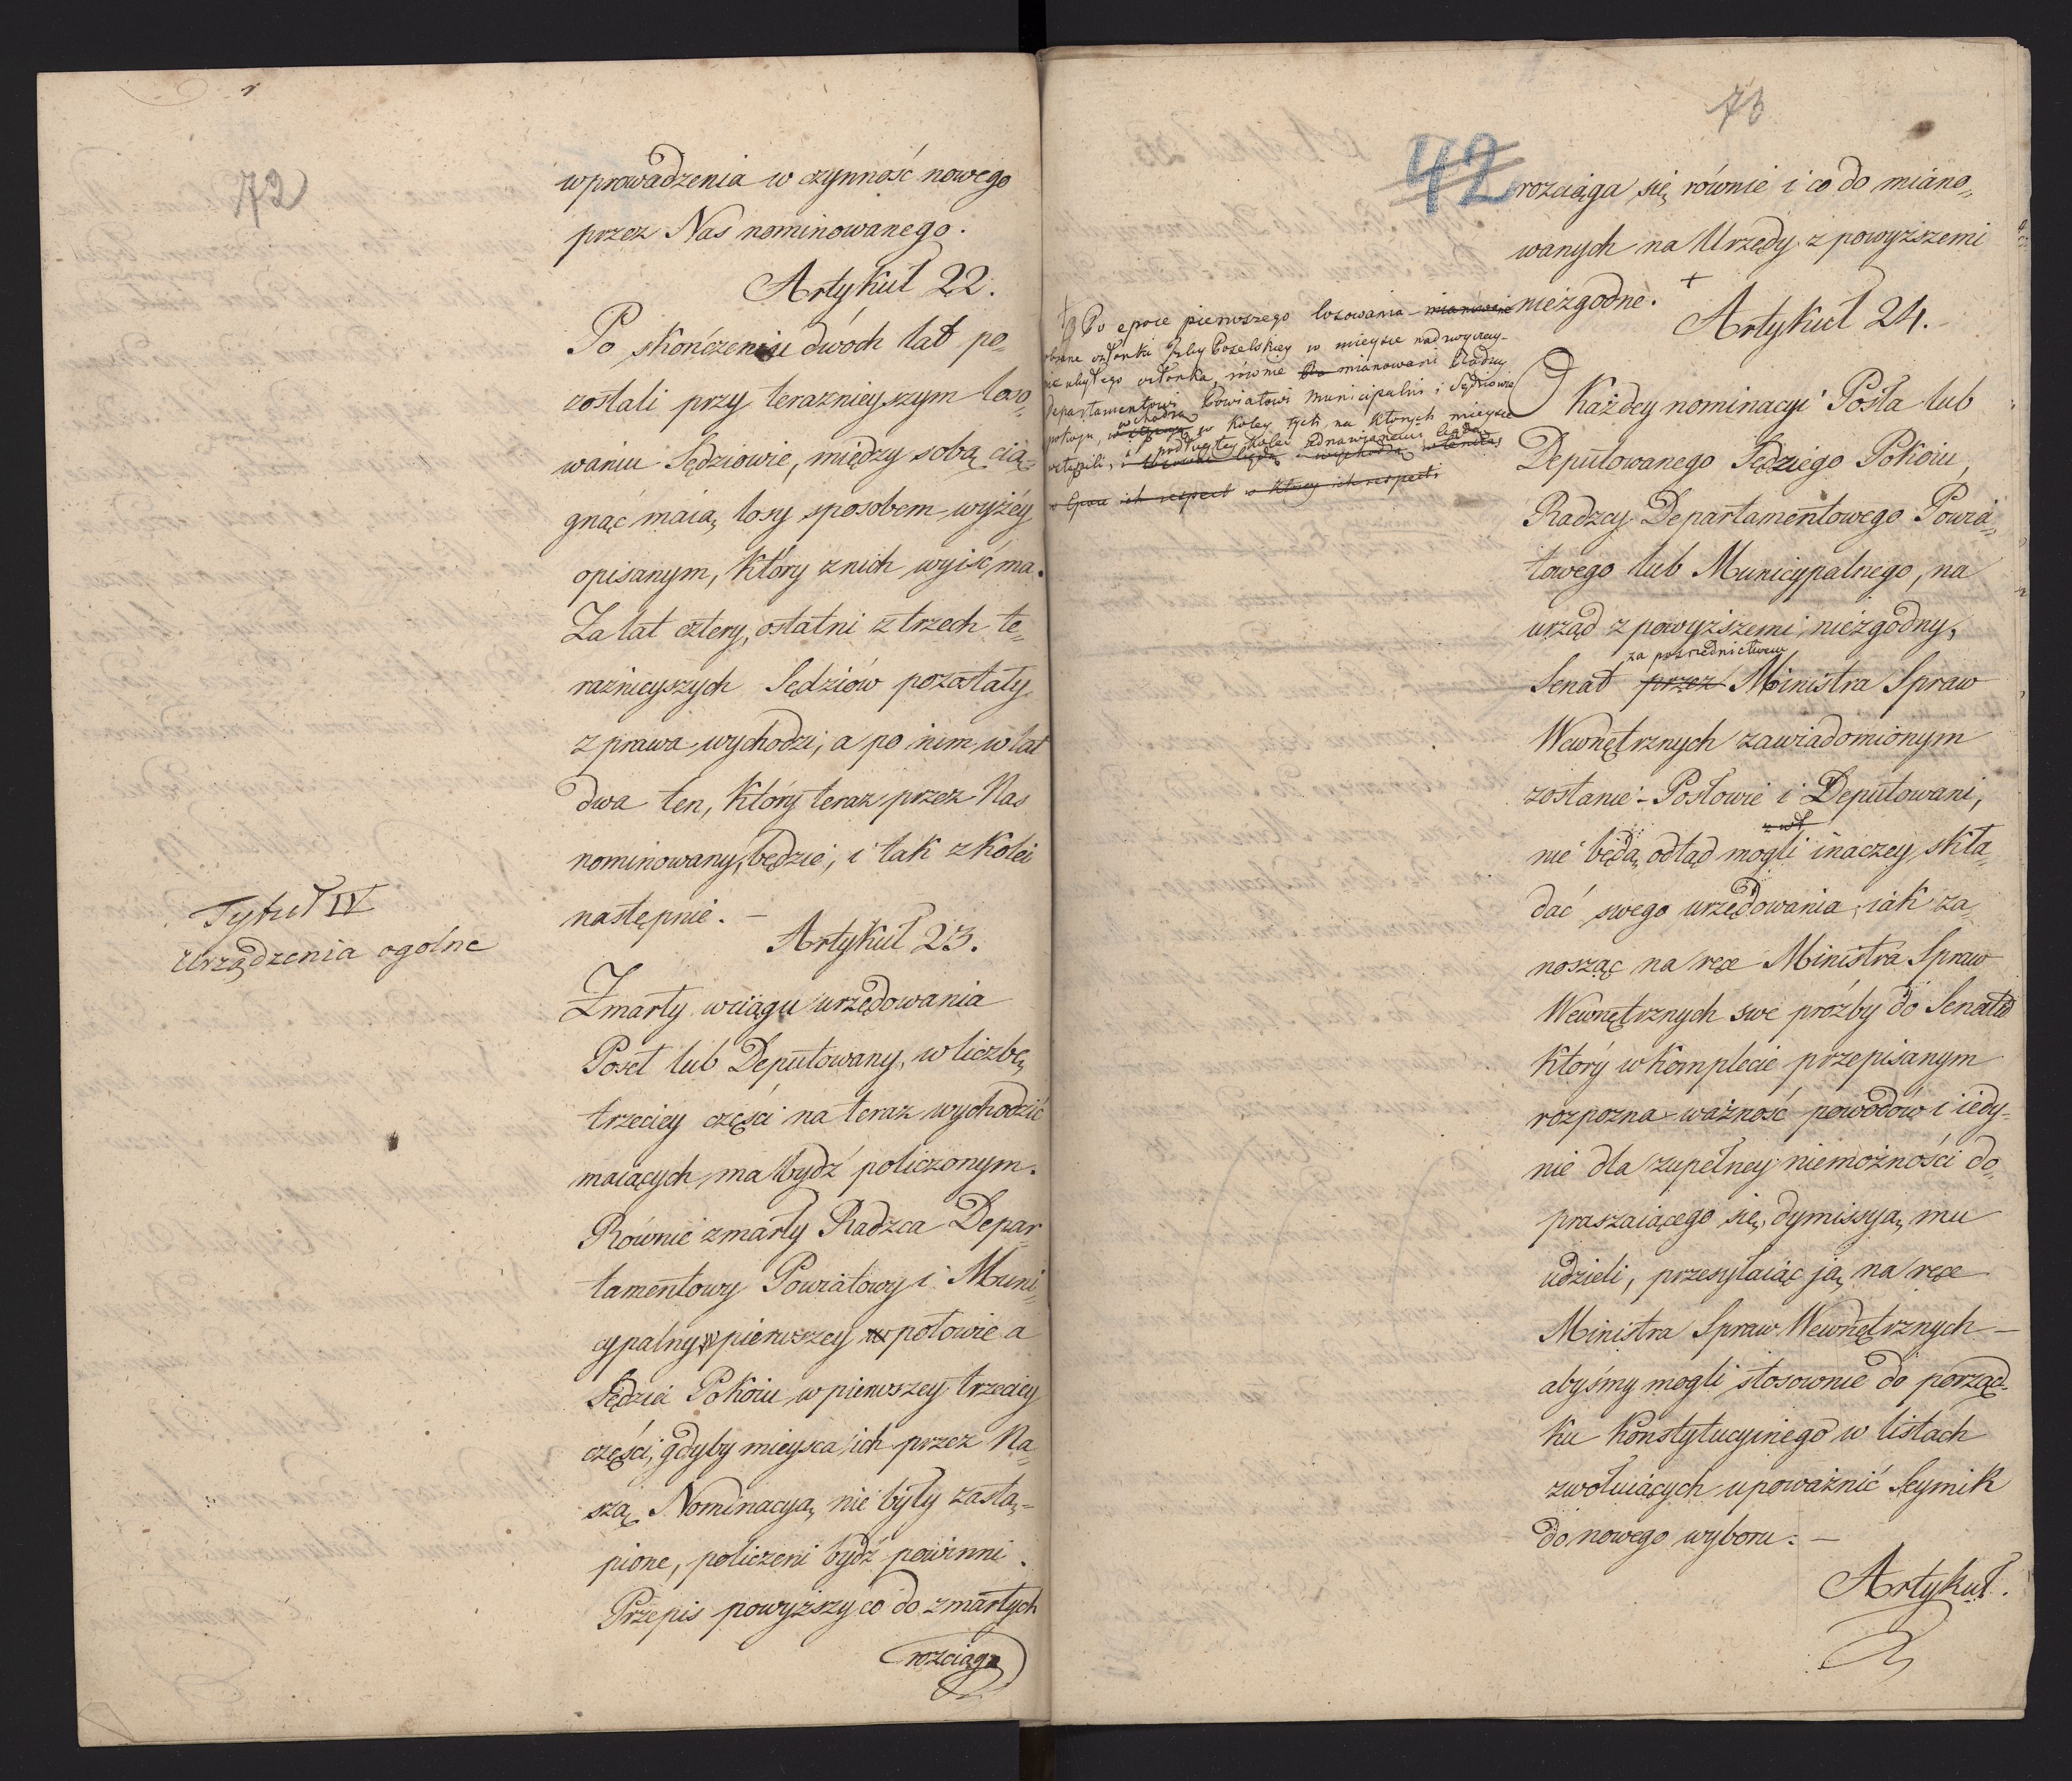 72
wprowadzenia w czynność nowego
przez Nas nominowanego.
Artykuł 22.
Po skończeniu dwóch lat po-
zostali przy teraznieyszym loso-
waniu Sędziowie, między sobą cią-
gnąć maią losy sposobem wyżéy
opisanym, który z nich wyiść ma.
Za lat cztery, ostatni z trzech te-
raźnieyszych Sędziów pozostały
z prawa wychodzi, a po nim w lat
dwa ten, który teraz przez Nas
nominowany będzie, i tak z kolei
następnie. –
Tytuł IV
Urządzenia ogolne
Artykuł 23.
Zmarły w ciągu urzędowania
Poseł lub Deputowany, w liczbę
trzeciey części na teraz wychodzić
maiących, ma bydź policzonym.
Równie zmarły Radzca Depar-
tamentowy Powiatowy i Muni-
cypalny w pierwszey połowie a
Sędzia Pokoiu w pierwszey trzeciey
części, gdyby mieysca ich przez Na-
szą Nominacyą nie były zastą-
pione, policzeni bydź powinni.
Przepis powyższy co do zmarłych
rozciąga
73
42
rozciąga się równie i co do miano-
wanych na Urzędy z powyższemi
niezgodne. +
Po epoce pierwszego losowania mianowane
obrane członki Izby Poselskiey w mieysce nadzwyczay-
nie ubyłego członka, równie mianowani Radzcy
Departamentowi Powiatowi Municipalni i Sędziowie
pokoju, wchodzą w koley tych, na których mieysce
wstąpili, i podług tey kolei odnawianemi będą
w Epoce ich respect w ktorey ich respect.
Artykuł 24.
O Każdey nominacyi Posła lub
Deputowanego Sędziego Pokoiu,
Radzcy Departamentowego Powia-
towego lub Municypalnego, na
urząd z powyższemi niezgodny,
za pośrednictwem
Senat przez Ministra Spraw
Wewnętrznych zawiadomionym
zostanie – Posłowie i Deputowani,
nie będą odtąd mogli inaczey skła-
dać swego urzędowania, iak za-
nosząc na ręce Ministra Spraw
Wewnętrznych swe prośby do Senatu
który w komplecie przepisanym
rozpozna ważność powodów i iedy-
nie dla zupełney niemożności do-
praszaiącego się, dymissyą mu
udzieli, przesyłaiąc ją na ręce
Ministra Spraw Wewnętrznych –
abyśmy mogli stosownie do porząd-
ku Konstytucyinego w listach
zwołuiących upoważnić Seymik
do nowego wyboru. –
Artykuł.